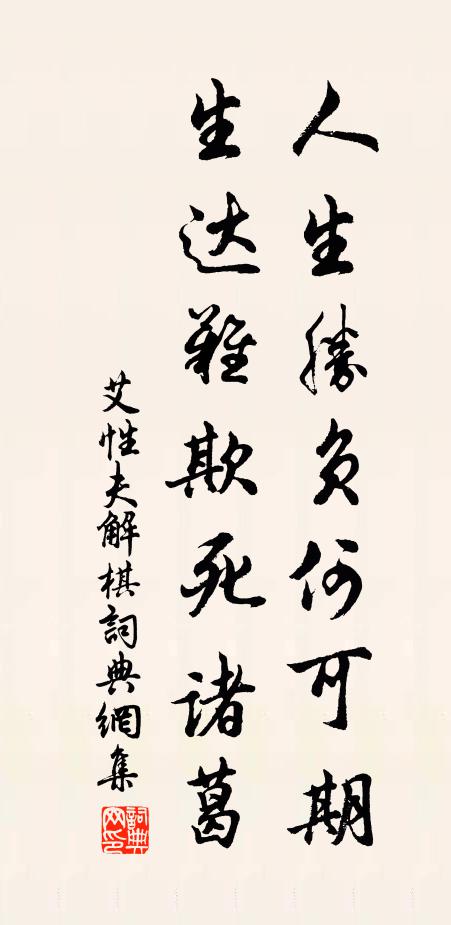 人生勝負何可期
生达難欺死诸葛
艾性夫解棋詞典網集
詞典网印